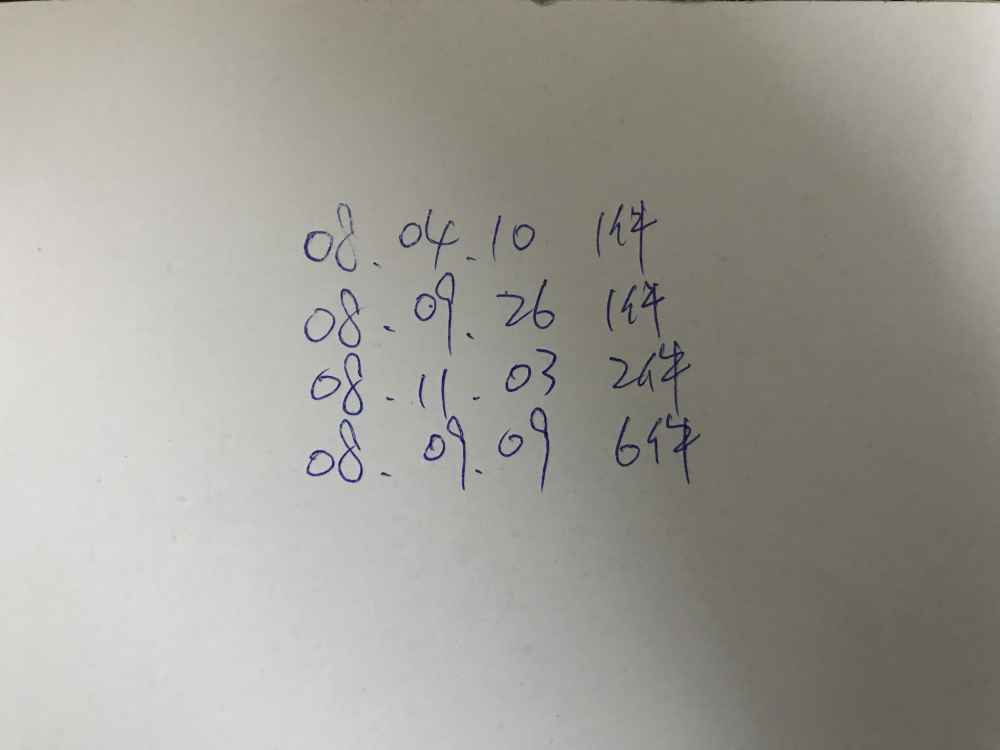 08.04.10 1件
08.09.26 1件
08.11.03 2件
08.09.09 6件